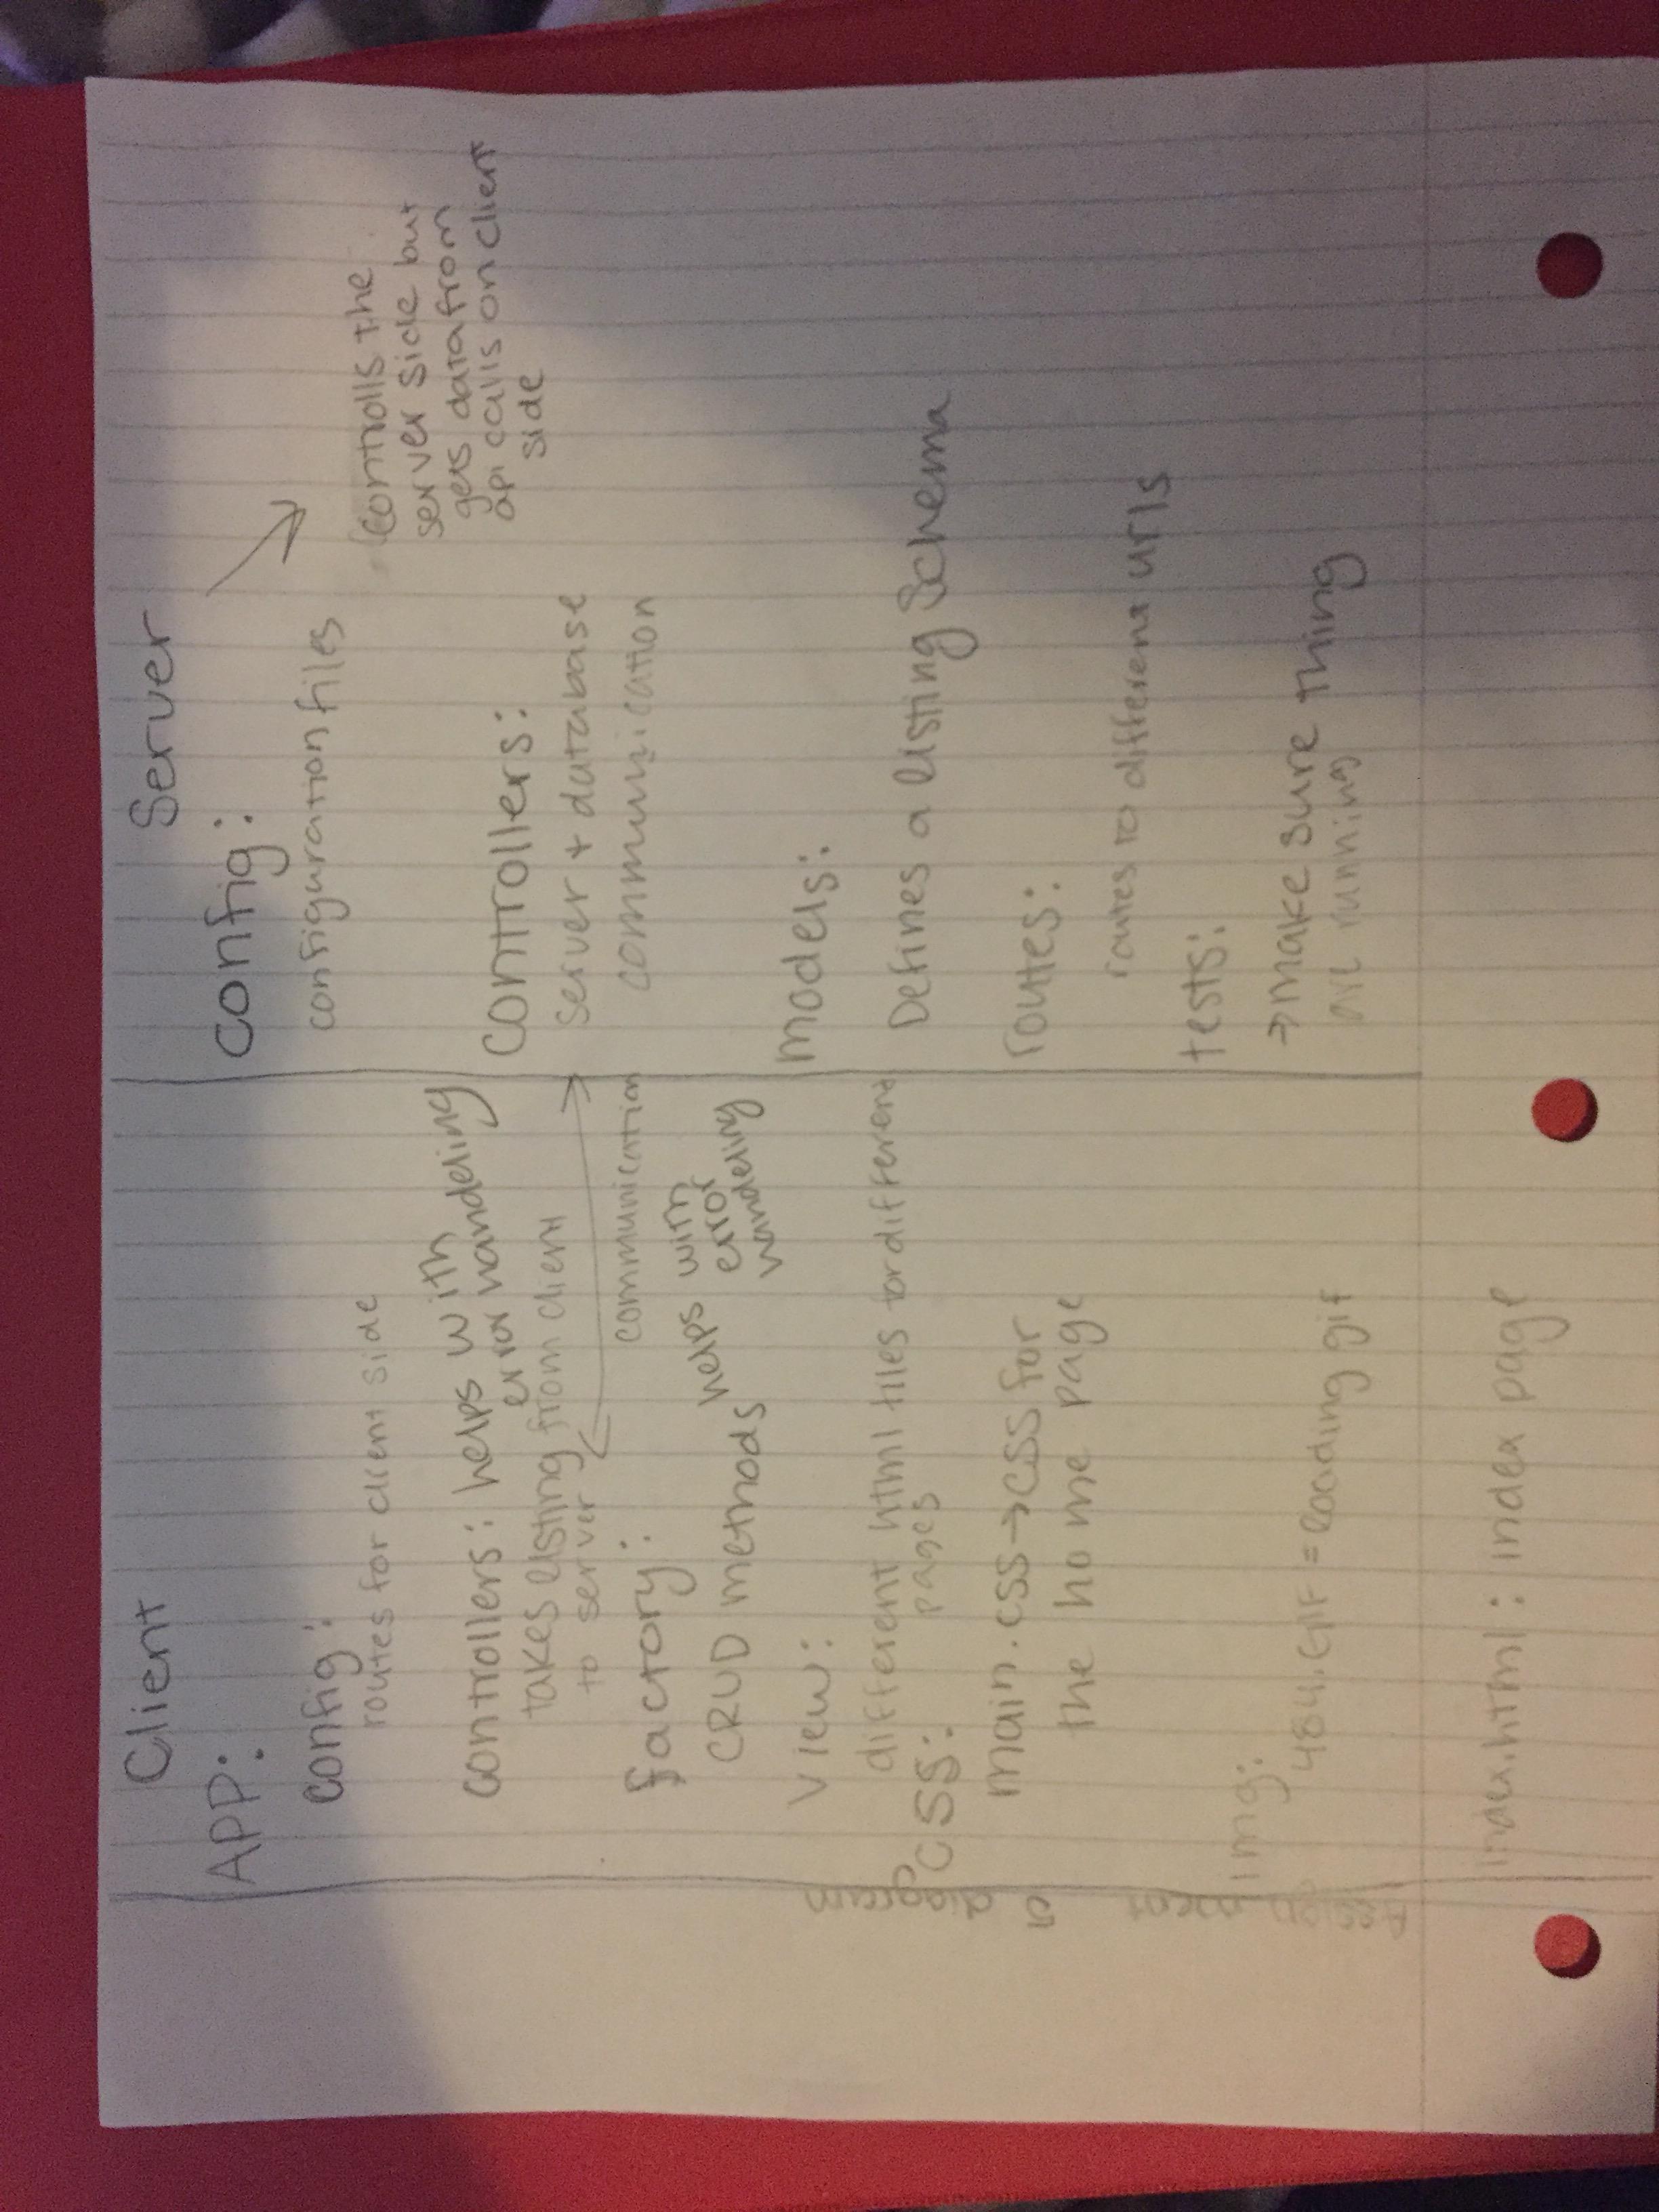 Client
APP:
config:
routes for client side
controllers: helps with
error handeling
takes listing from client
to server
communication
factory:
CRUD methods helps with
error
handeling
View:
different html files for different
pages
CSS:
main.css → css for
the home page
img:
484.GIF = loading gif
index.html: index page
Assignment 5 diagram
Server
config:
configuration files
Controlls the
server side but
gets data from
api calls on client
side
controllers:
server + database
communication
models:
Defines a listing Schema
routes:
routes to different urls
tests:
→ make sure thing
are running